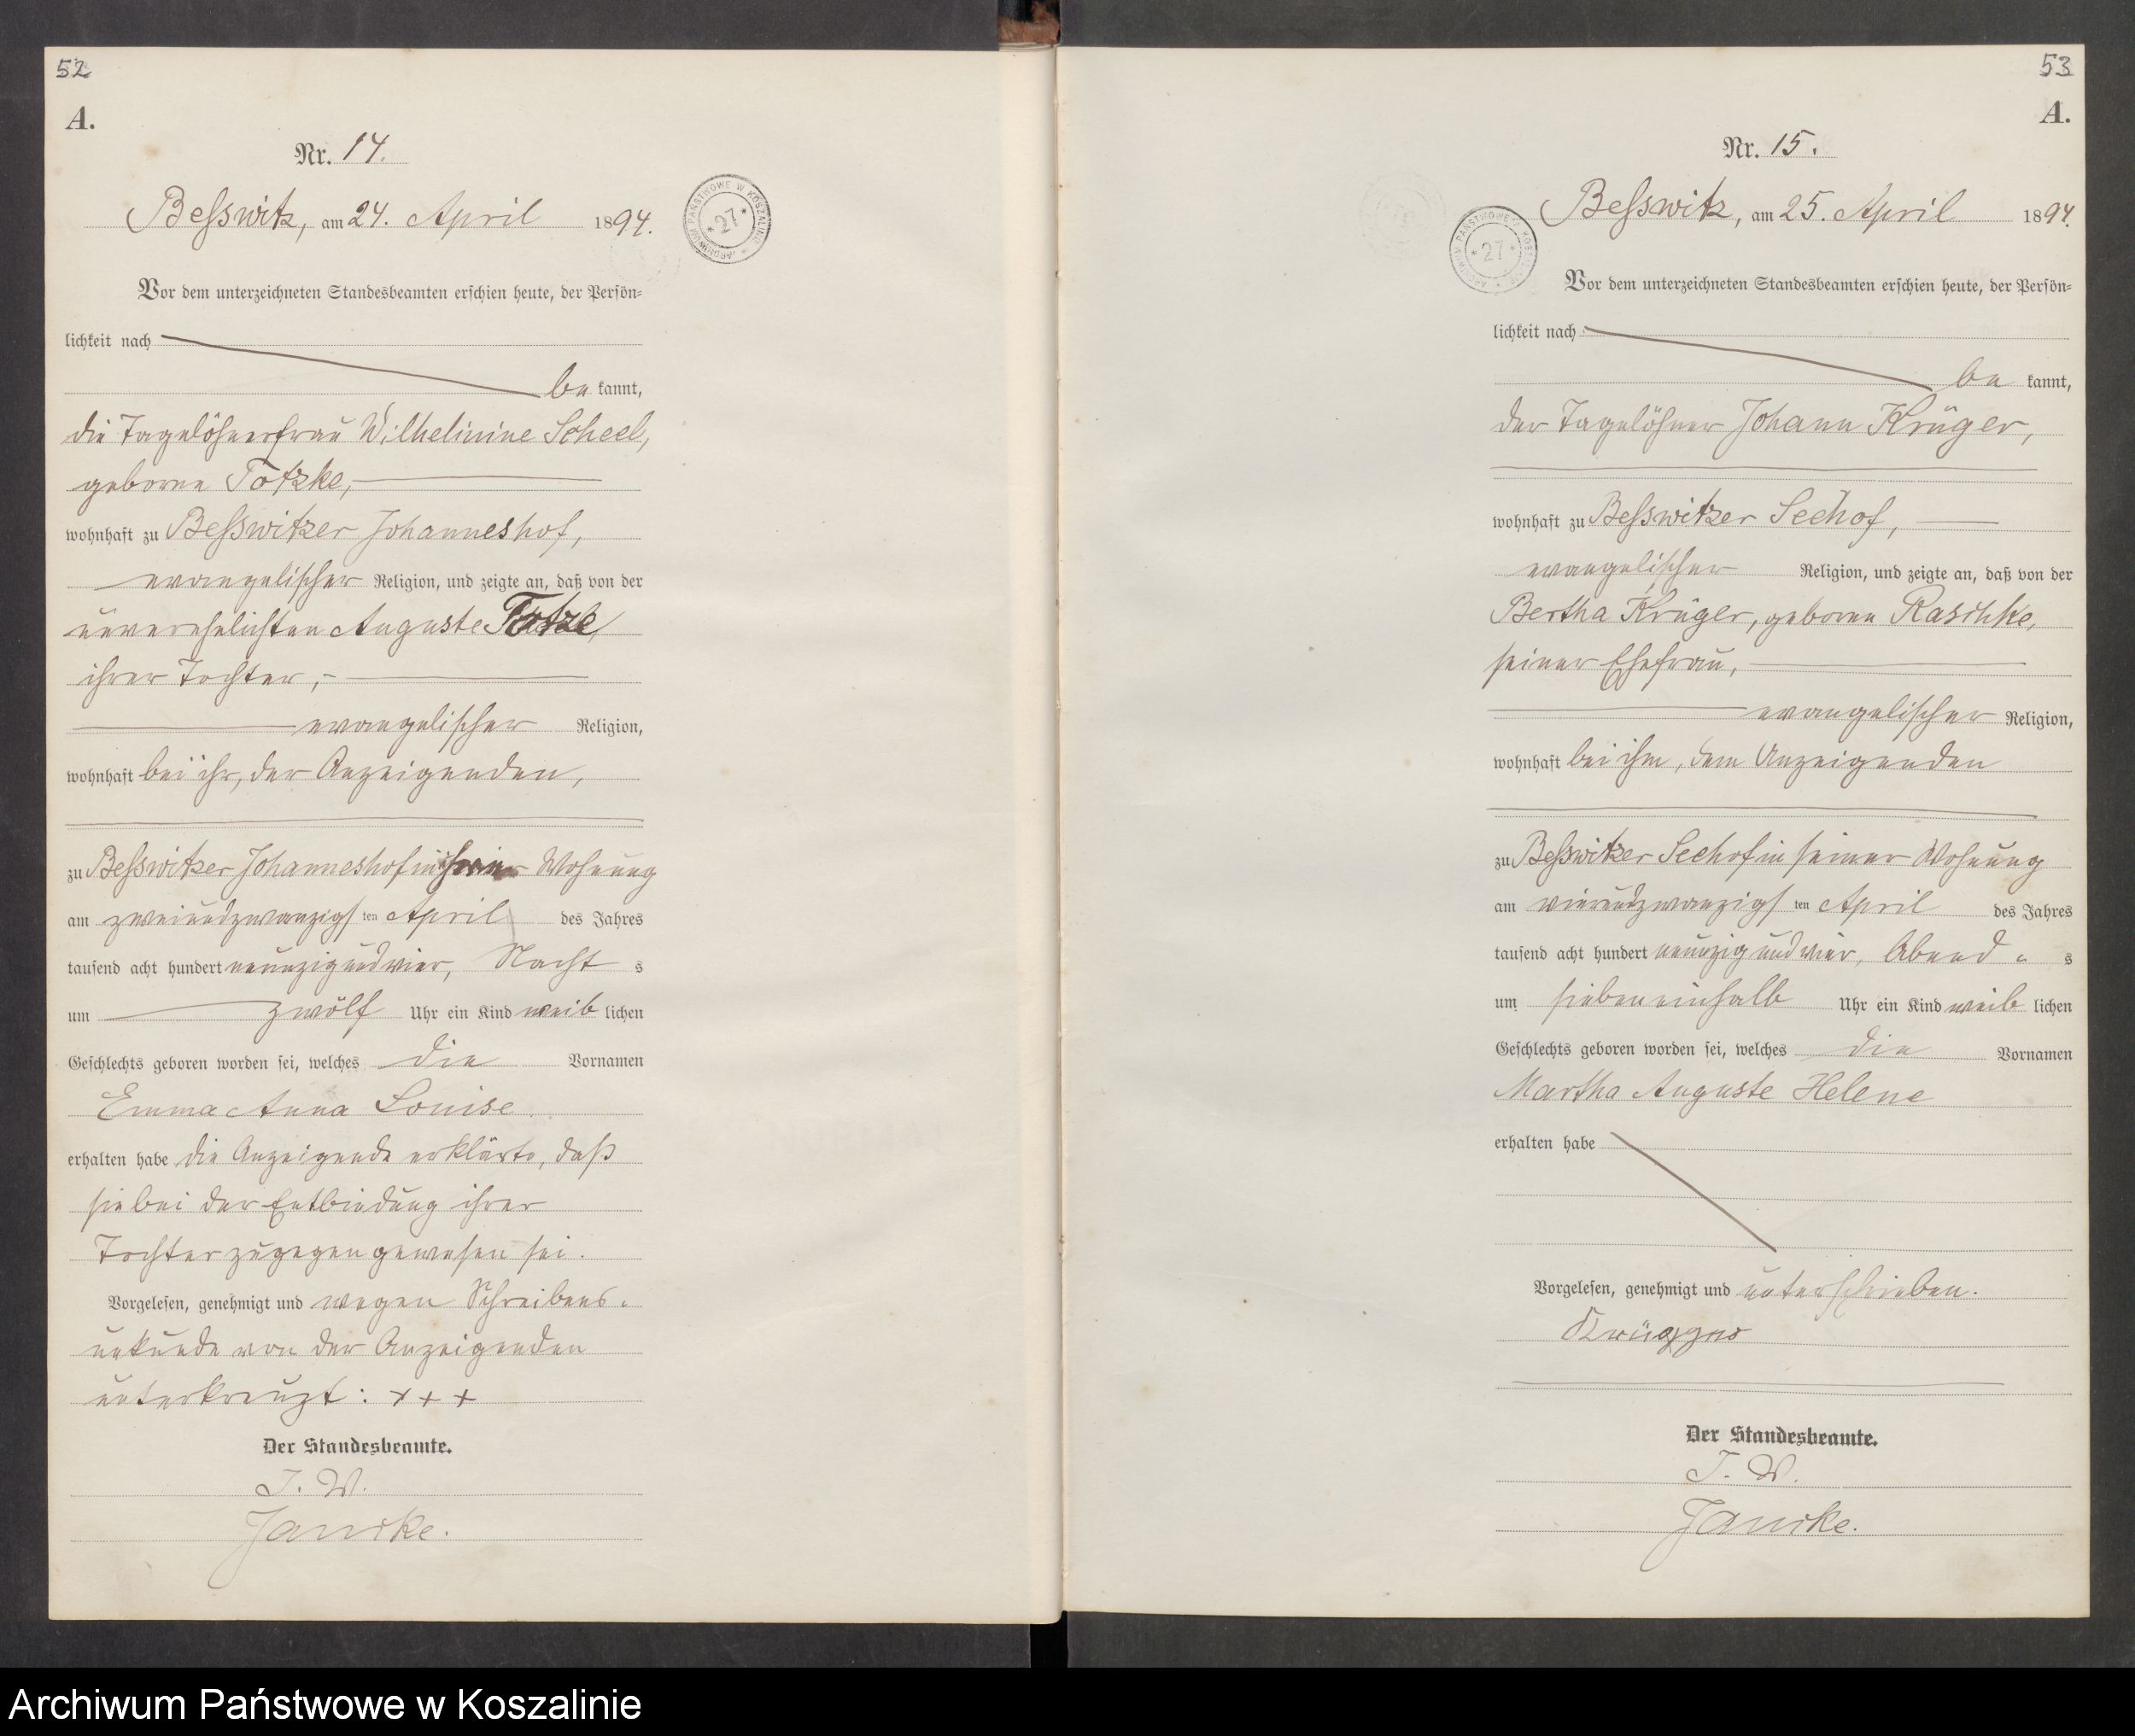 52
A.
Nr. 14.
Beßwitz, am 24. April 1894.
ARCHIWUM PAŃSTWOWE W KOSZALINIE * 27 *
Vor dem unterzeichneten Standesbeamten erschien heute, der Persön-
lichkeit nach
be kannt,
die Tagelöhnerfrau Wilhelmine Scheel,
geborne Totzke,
wohnhaft zu Beßwitzer Johanneshof,
evangelischer Religion, und zeigte an, daß von der
unverehelichten Auguste
ihrer Tochter,
evangelischer Religion,
wohnhaft bei ihr, der Anzeigenden,
zu Beßwitzer Johanneshof in ihrer Wohnung
am zweiundzwanzigs ten April des Jahres
tausend acht hundert neunzig und vier, Nacht s
um zwölf Uhr ein Kind weib lichen
Geschlechts geboren worden sei, welches die Vornamen
Emma Anna Louise.
erhalten habe die Anzeigende erklärte, daß
sie bei der Entbindung ihrer
Tochter zugegen gewesen sei.
Vorgelesen, genehmigt und wegen Schreibens-
unkunde von der Anzeigenden
unterkreuzt: +++
Der Standesbeamte.
J. V.
Jancke.
53
A.
Nr. 15.
Beßwitz, am 25. April 1894.
ARCHIWUM PAŃSTWOWE W KOSZALINIE * 27 *
Vor dem unterzeichneten Standesbeamten erschien heute, der Persön-
lichkeit nach
be kannt,
der Tagelöhner Johann Krüger,
wohnhaft zu Beßwitzer Seehof,
evangelischer Religion, und zeigte an, daß von der
Bertha Krüger, geborne Raschke,
seiner Ehefrau,
evangelischer Religion,
wohnhaft bei ihm, dem Anzeigenden
zu Beßwitzer Seehof in seiner Wohnung
am vierundzwanzigs ten April des Jahres
tausend acht hundert neunzig und vier, Abend - s
um siebeneinhalb Uhr ein Kind weib lichen
Geschlechts geboren worden sei, welches die Vornamen
Martha Auguste Helene
erhalten habe
Vorgelesen, genehmigt und unterschrieben.
Der Standesbeamte.
J. V.
Jancke.
Archiwum Państwowe w Koszalinie